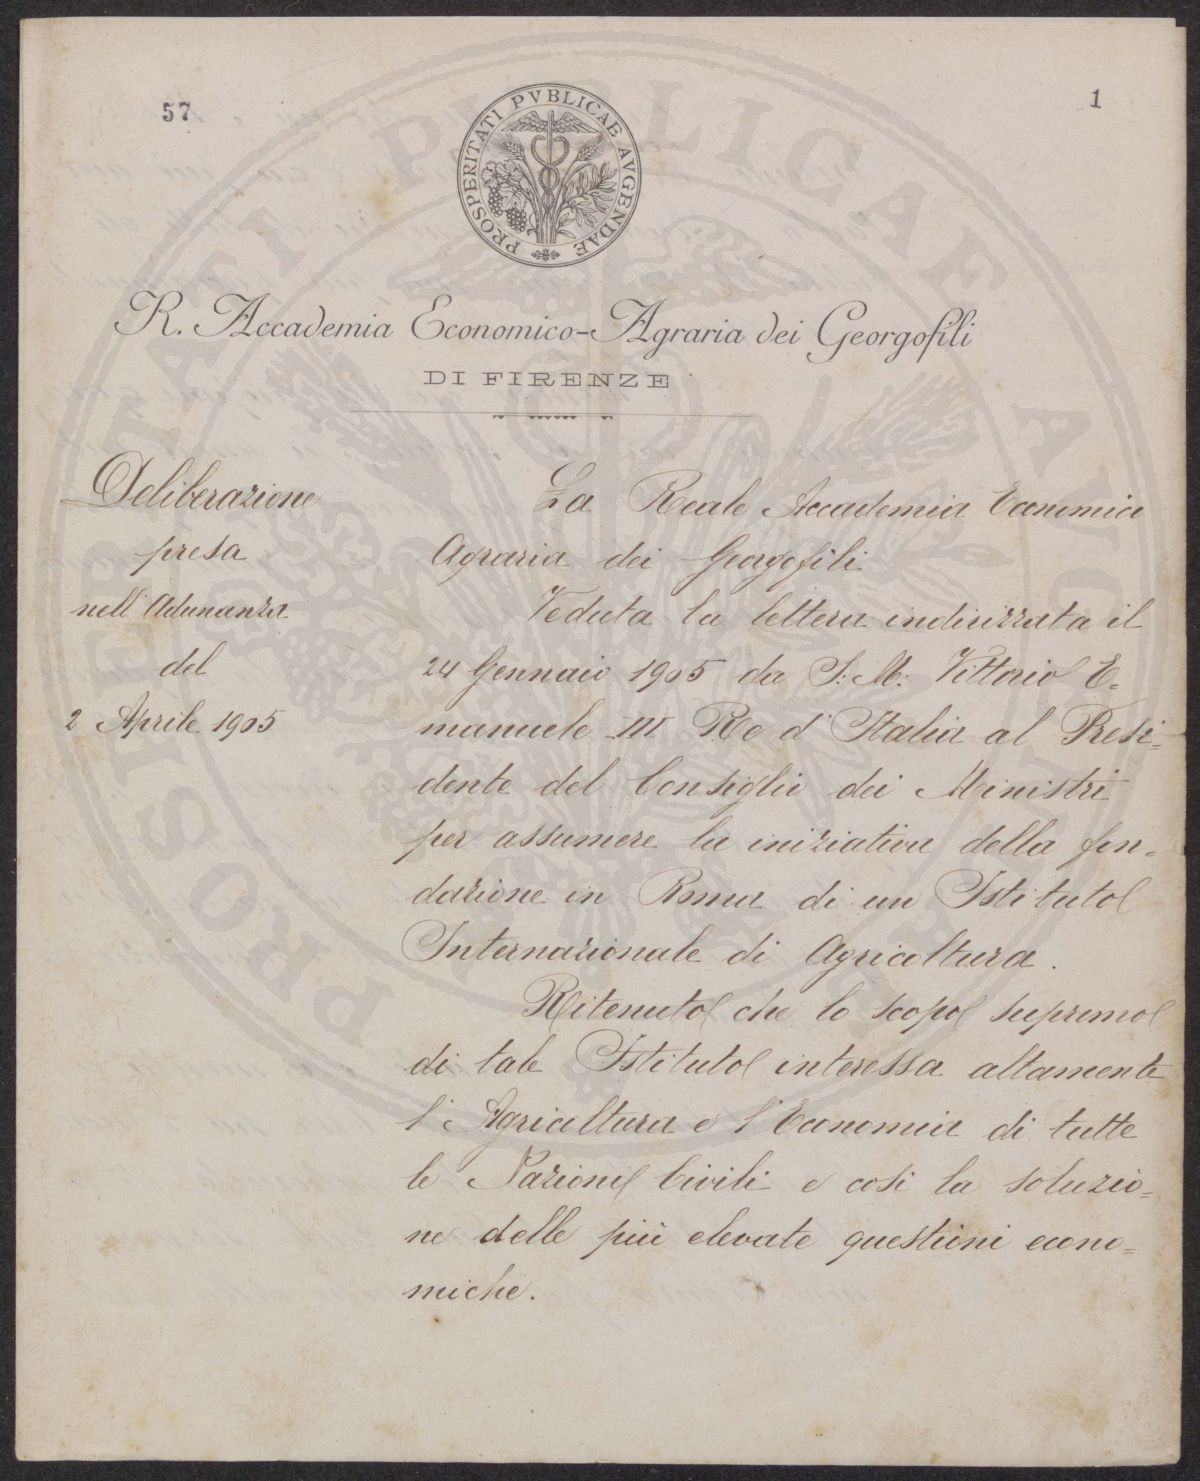 57
1
PROSPERITATI PVBLICAE AVGENDAE
R. Accademia Economico-Agraria dei Georgofili
DI FIRENZE
Deliberazione
presa
nell'Adunanza
del
2 Aprile 1905
La Reale Accademia Economica
Agraria dei Georgofili
Veduta la lettera indirizzata il
24 Gennaio 1905 da S. M. Vittorio E=
manuele III Re d'Italia al Presi=
dente del Consiglio dei Ministri
per assumere la iniziativa della fon=
dazione in Roma di un Istituto
Internazionale di Agricoltura.
Ritenuto che lo scopo supremo
di tale Istituto interessa altamente
l'Agricoltura e l'Economia di tutte
le Nazioni Civili e così la soluzio=
ne delle più elevate questioni econo=
miche.